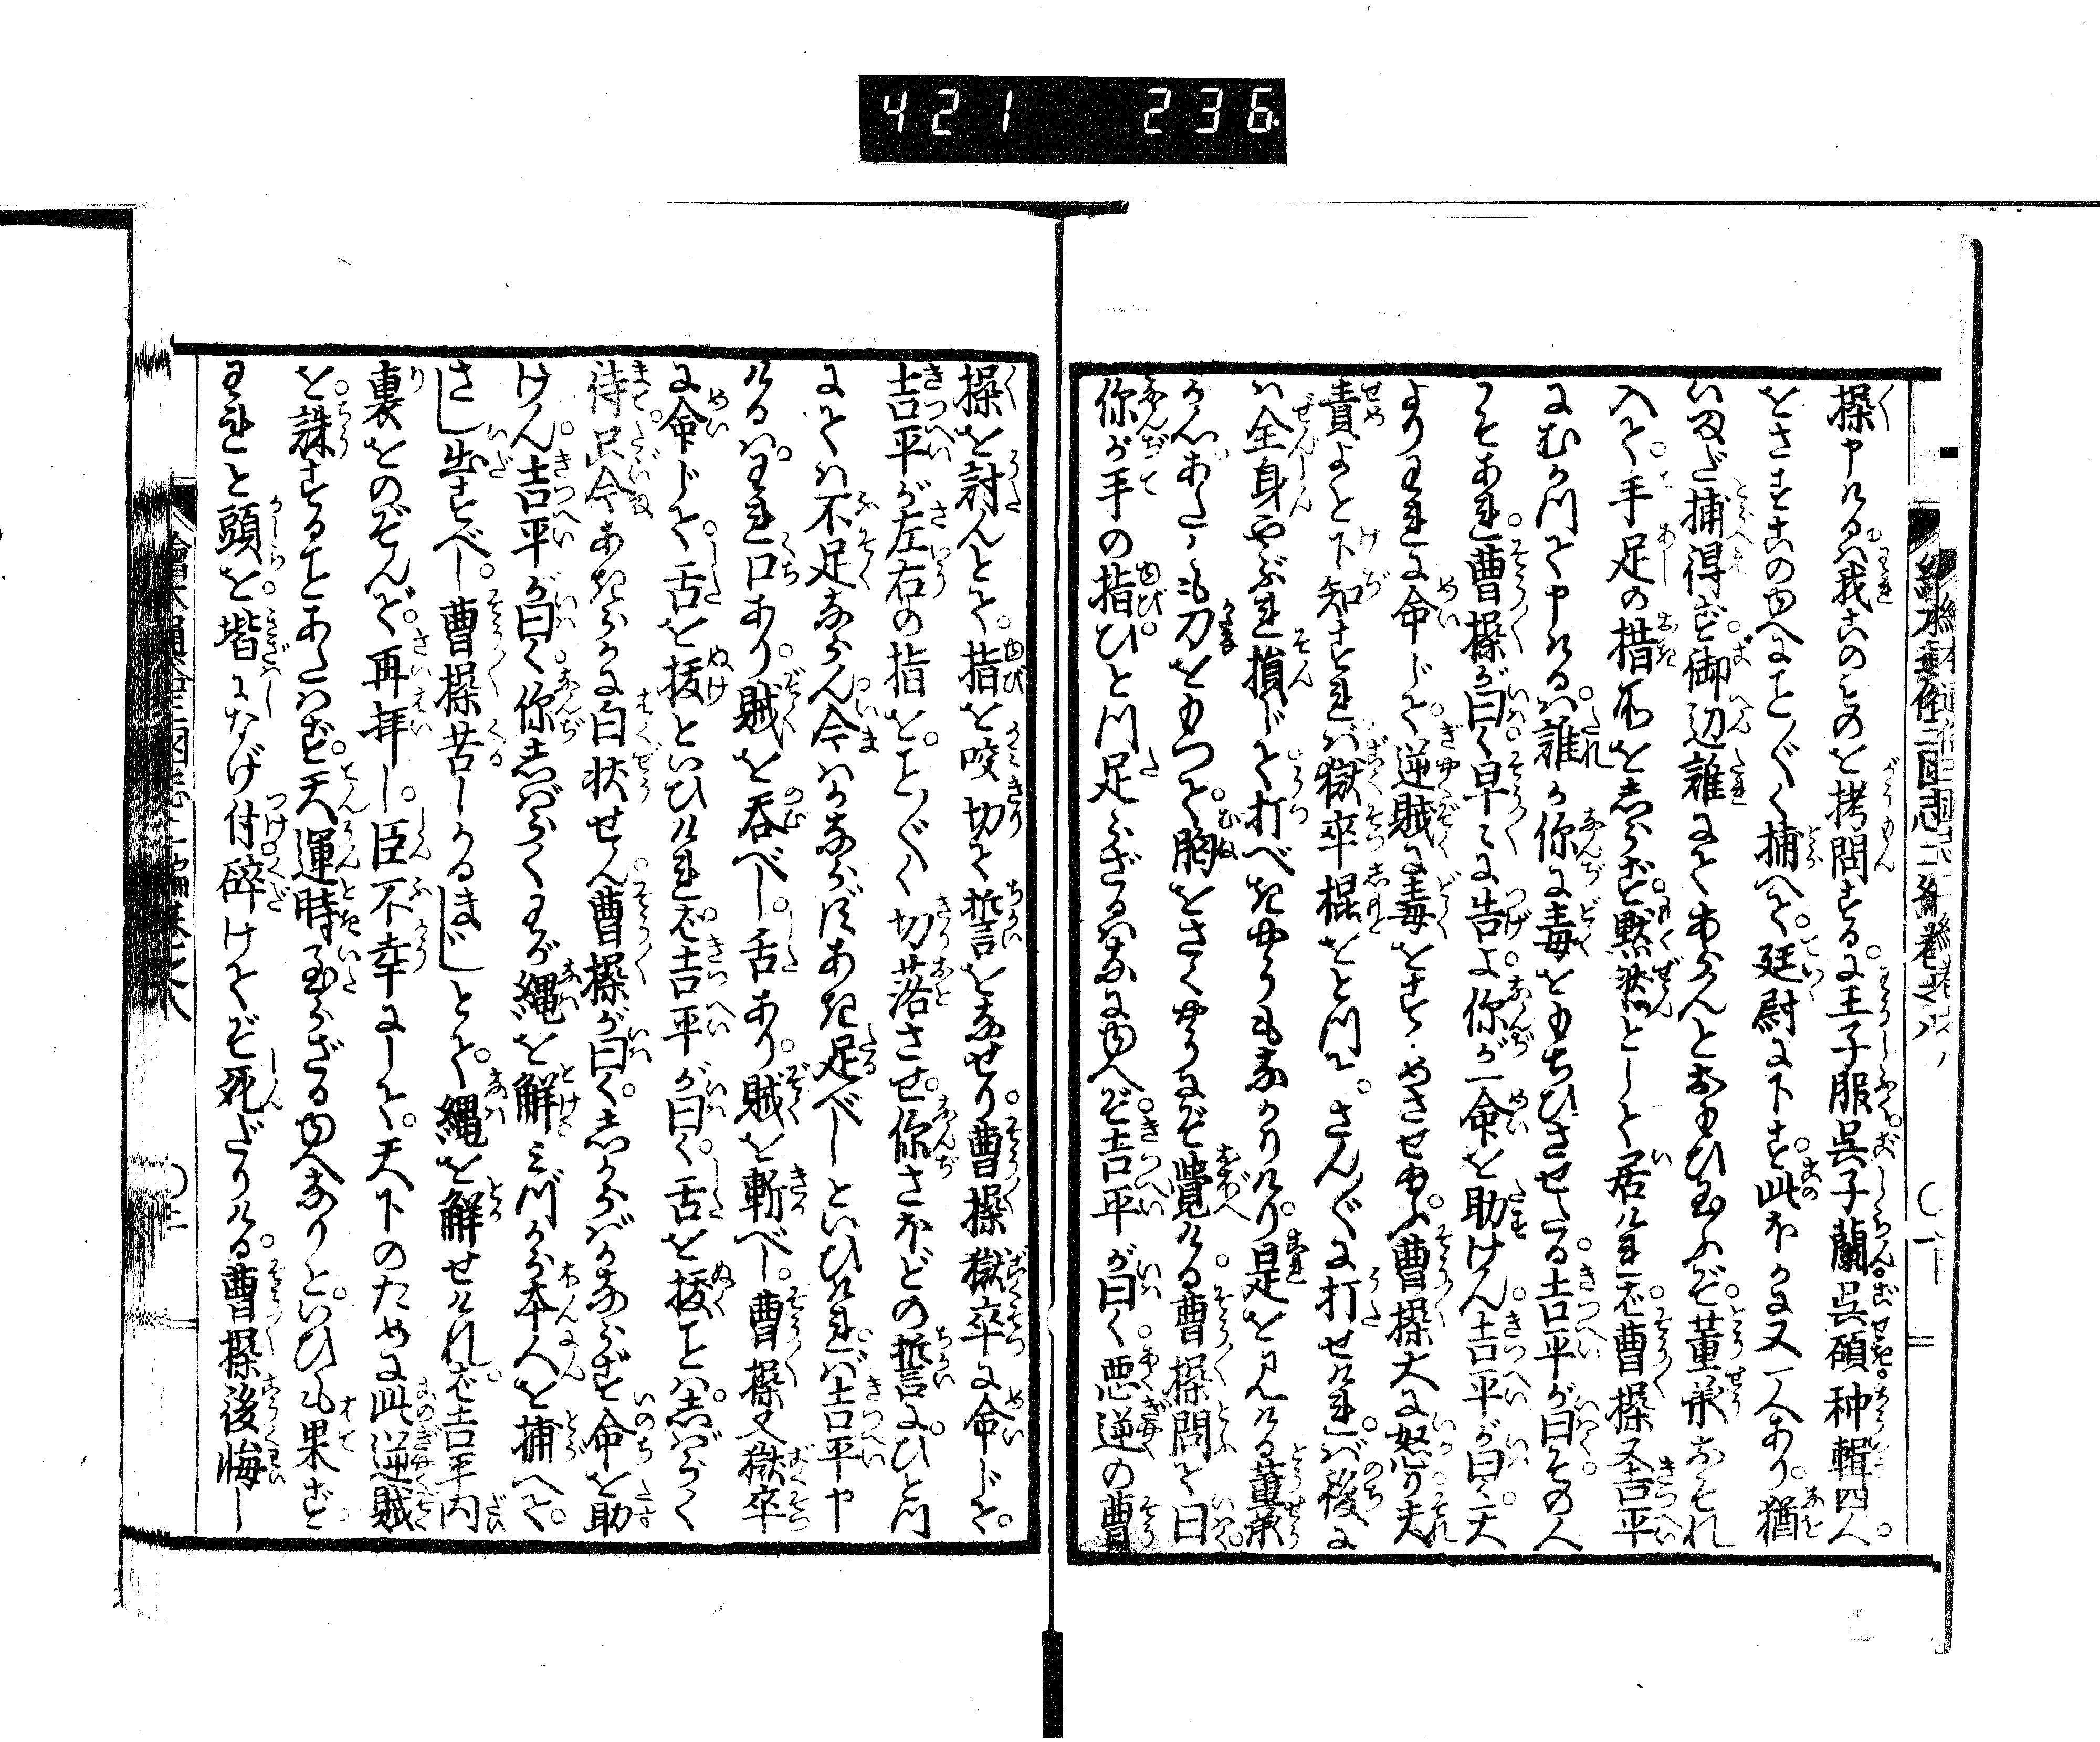 421 236
操申けるハ我このものを拷問するに王子服呉子蘭呉碩种輯四人
をさすこのゆへにこと〴〵く捕へて廷尉に下す此ほかに又一人あり猶
いまだ捕得ず御辺誰にてあらんとおもひ玉ふぞ董承おそれ
入て手足の措所を志らず黙然として居ければ曹操又吉平
にむかつて申けるハ誰か你に毒をもちひさせたる吉平が曰その人
こそあれ曹操が曰く早々に告よ你が一命を助けん吉平が曰く天
よりわれに命じて逆賊に毒をすゝめさせ玉ふ曹操大に怒り夫
責よと下知すれバ獄卒棍をとつてさん〴〵に打せけれバ後に
ハ全身やぶれ損じて打べきやうもなかりけり是を見ける董承
が心あたかも刀をもつて胸をさくやうにぞ覚ける曹操問て曰
你が手の指ひとつ足らざるハなにゆへぞ吉平が曰く悪逆の曹
操を討んとて指を咬切て誓をなせり曹操獄卒に命じて
吉平が左右の指をこと〴〵く切落させ你さほどの誓にひとつ
にてハ不足ならん今ハかならずあき足べしといひけれバ吉平申
けるハわれ口あり賊を呑べし舌あり賊を斬べし曹操又獄卒
に命じて舌を抜といひければ吉平が曰く舌を抜ことハ志バらく
待只今あきらかに白状せん曹操が曰く志からバかならず命を助
けん吉平が曰く你志バらくわが縄を解ミづから本人を捕へて
さし出すべし曹操苦しかるまじとて縄を解せけれバ吉平内
裏をのぞんで再拝し臣不幸にして天下のために此逆賊
を誅することあたハず天運時至らざるゆへなりといひも果ず
われと頭を堦になげ付砕けてぞ死だりける曹操後悔し